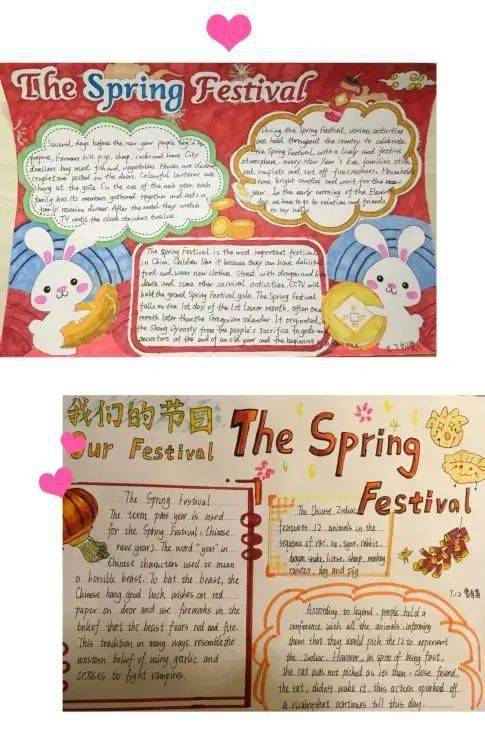 The Spring Festival
Several days before the new year people begin to
prepare. Farmers kill pigs, sheep, cocks and hens. City
dwellers buy meat fish and vegetables. Houses are cleaned
couplets are posted on the doors. Colourful lanterns are
hang at the gate. On the eve of the new year, each
family has its members gathered together and eats a
family reunion dinner. After the meal they watch
TV until the clock strickes twelve.
During the Spring Festival, various activities
are held throughout the country to celebrate
the Spring Festival with a lively and festive
atmosphere. every New Year's Eve, families stick
red couplets and set off firecrackers. Households
have bright candles and wait for the new
year. In the early morning of the
day, we have to go to relatives and friends
to say hello
The Spring Festival is the most important festivals
in China. Children like it because they can have delicious
food and wear new clothes. Street with dragon and lion
dance and some other carnival activities. CCTV will
hold the grand Spring Festival gala. The Spring Festival
falls on the 1st day of the 1st lunar month, often one
month later than the Gregorian calendar. It originated in
the Shang Dynasty from the people's sacrifice to gods and
ancestors at the end of an old year and the beginning of a new one.
我们的节日
Our Festival
The Spring
Festival
The Spring Festival
The term pass year is used
for the Spring Festival (Chinese
new year). The word "year" in
Chinese characters used to mean
a horrible beast. To bat the beast, the
Chinese hang good luck wishes on red
paper on door and use fireworks in the
belief that the beast fears red and fire.
This tradition in many ways resemblethe
western belief of using garlic and
crosses to fight vampires.
The Chinese Zodiac
features 12 animals in the
sequence of rat, ox, tiger, rabbit,
dragon, snake, horse, sheep, monkey
rooster, dog and pig.
7.12
According to legend, people held a
conference with all the animals, informing
them that they would pick the 12 to represent
the zodiac. However, in spite of being fast,
the cat was not picked as its then-close friend,
the rat, didn't wake it. this action sparked off
a rivalry that continues till this day.